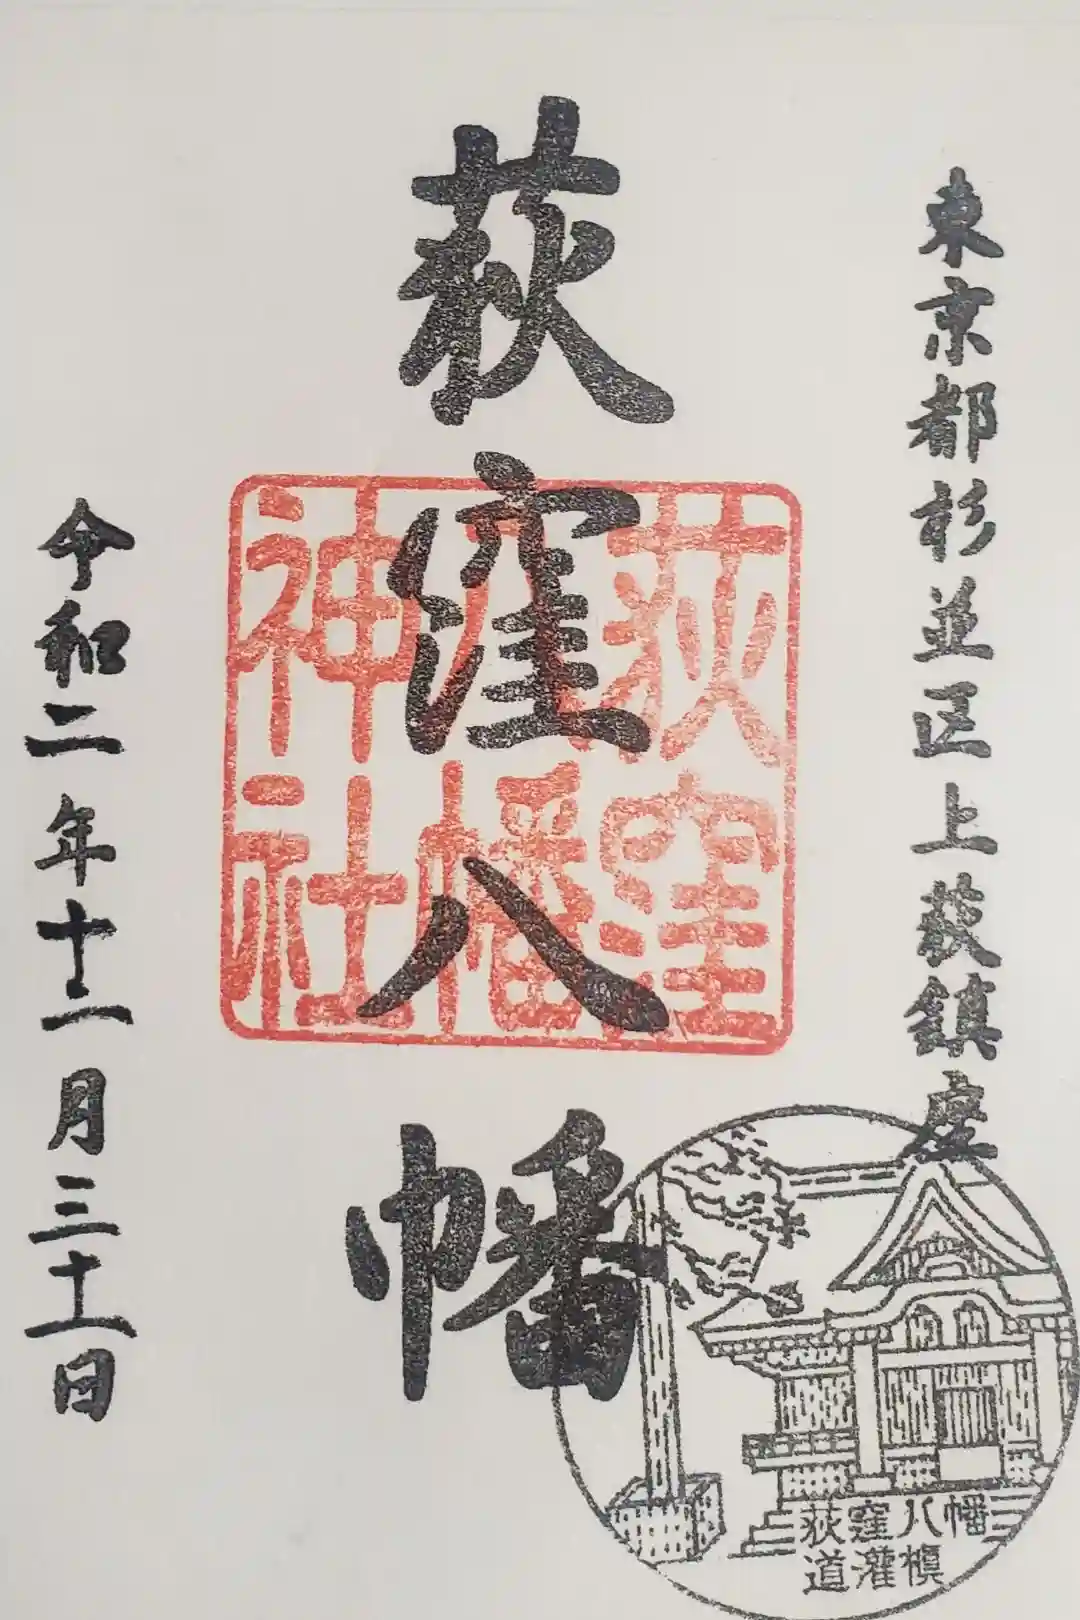 東京都杉並区上荻鎮座
荻窪八幡
荻窪
八幡
神社
令和二年十二月三十一日
荻窪八幡
道灌槇